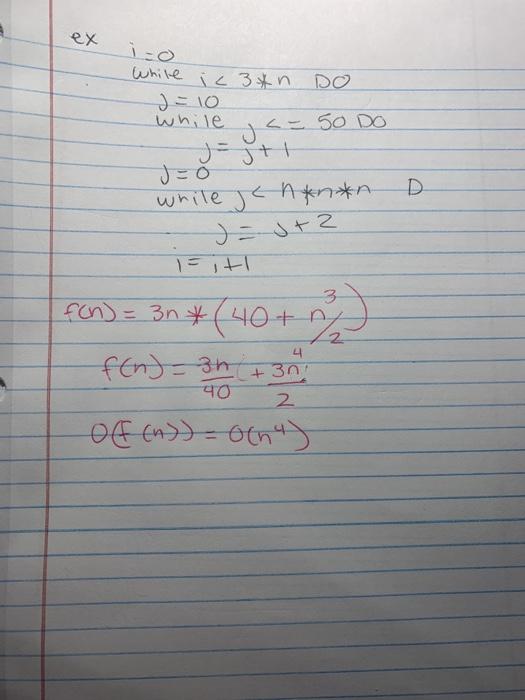 ex
i=0
while i < 3*n DO
j=10
while j <= 50 DO
j = j+1
j=0
while j < n*n*n D
j = j+2
i = i+1
f(n) = 3n * (40 + n^3/2)
f(n) = 3n/40 + 3n^4/2
O(f(n)) = O(n^4)